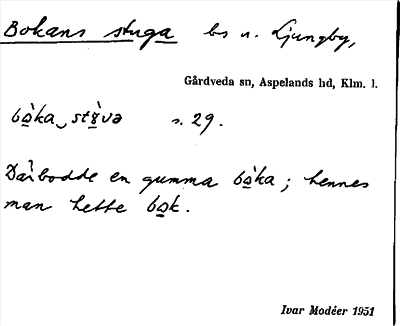 Bokans stuga bs u. Ljungby,
Gårdveda sn, Aspelands hd, Klm. l.
bò̱ka‿stù̱va s. 29.
Där bodde en gumma bò̱ka ; hennes
man hette bo̱k.
Ivar Modéer 1951